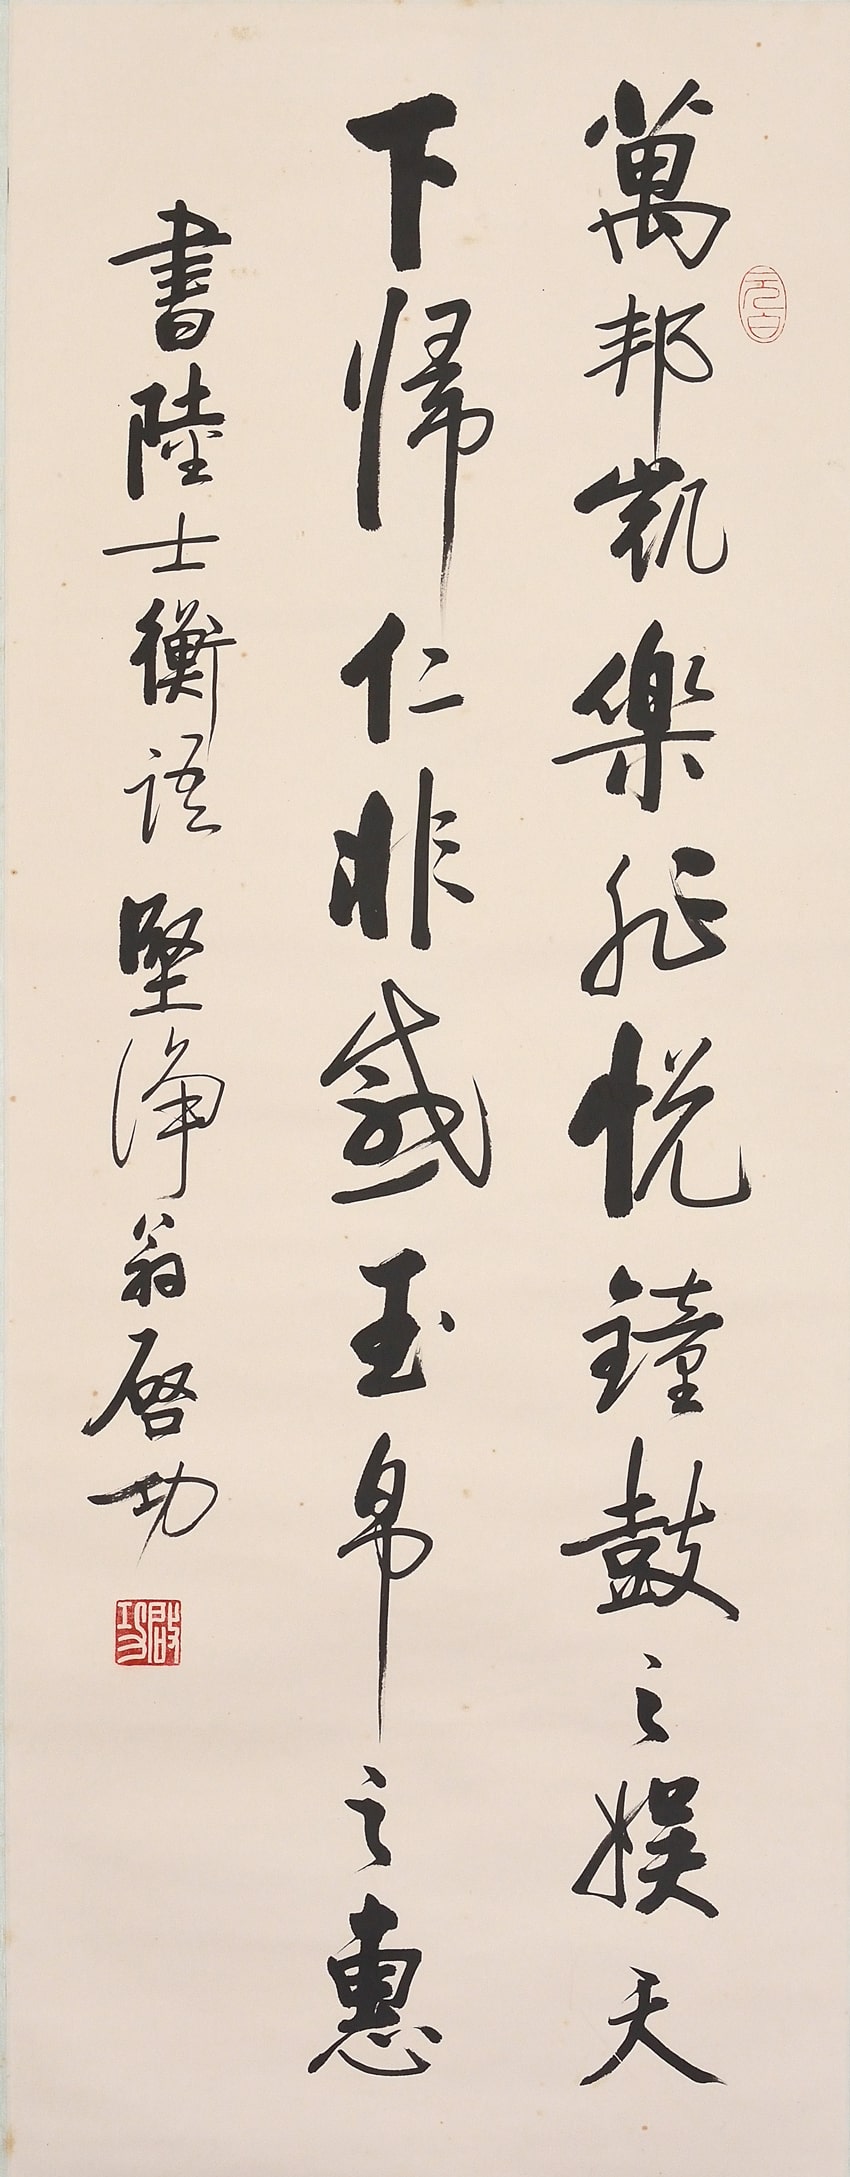 萬邦凱樂非悅鐘鼓之娛天
下歸仁非感玉帛之惠
書陸士衡語堅淨翁啓功
元白
啟功